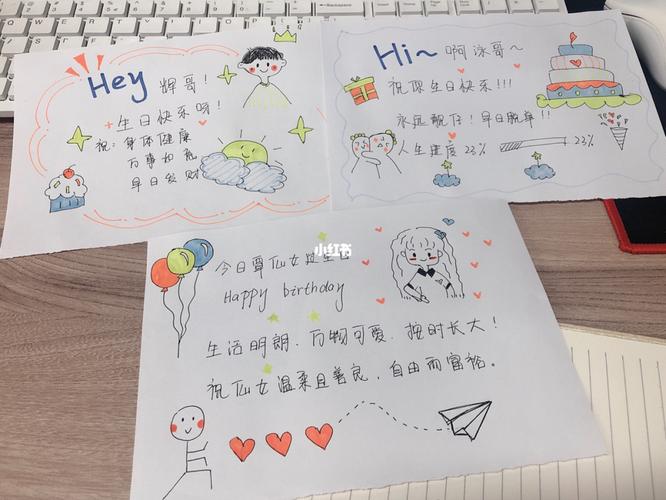 Hey 辉哥！
生日快乐呀！
祝：身体健康
万事如意
早日发财
Hi~ 啊泳哥~
祝你生日快乐!!!
永远靓仔！早日脱单!!
人生进度23% 23%
小红书
今日覃仙女过生日
Happy birthday
生活明朗．万物可爱．按时长大！
祝仙女温柔且善良，自由而富裕。
Backspace